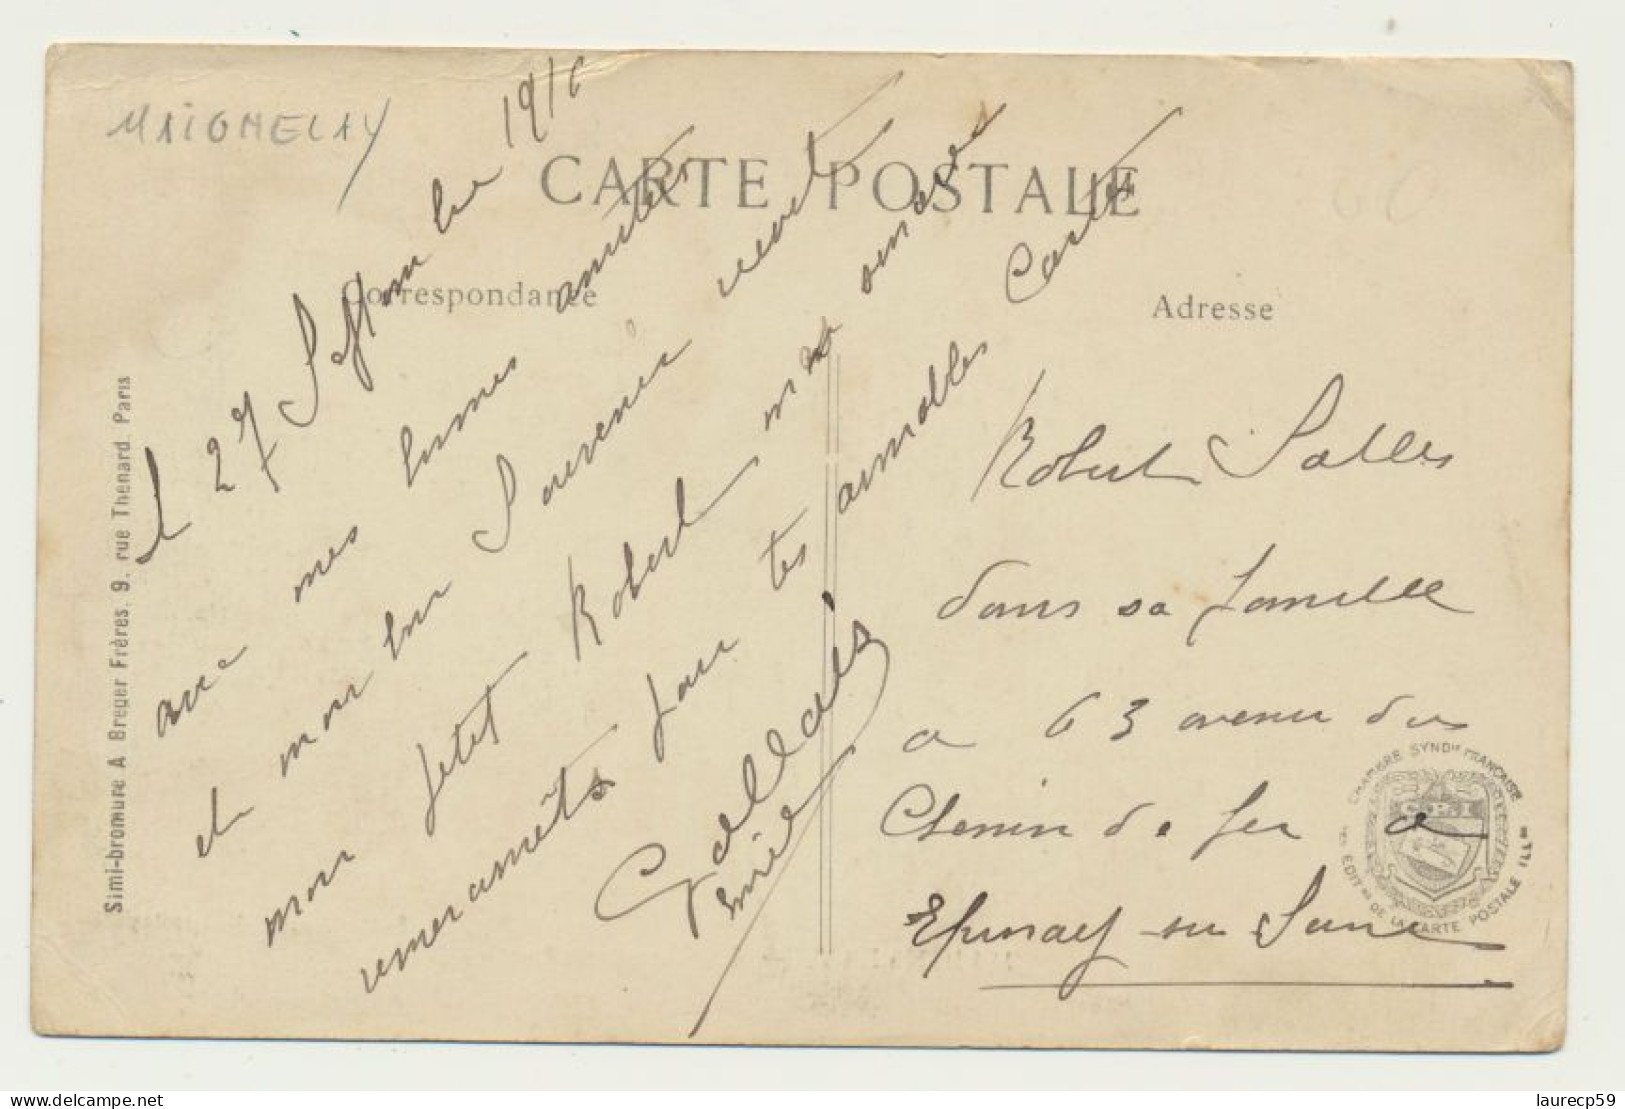 MAIGNELAY
CARTE POSTALE
Correspondance
Adresse
l 27 Septembre 1916
avec mes bonnes amitiés
et mon bon Souvenir recoit
mon petit Robert mes
remerciments pour tes aimables Cartes
Galladès
Emile
Robert Salles
dans sa famille
a 63 avenue du
Chemin de fer a
Epinay sur Seine
Simi-bromure A. Breger Frères. 9. rue Thenard Paris
CHAMBRE SYNDle FRANÇAISE
DE LA CARTE POSTALE ILLée
C.P.I
laurecp59